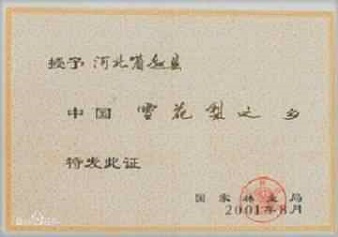 授予 河北省赵县
中国 雪花梨之乡
特发此证
国家林业局
2001年8月